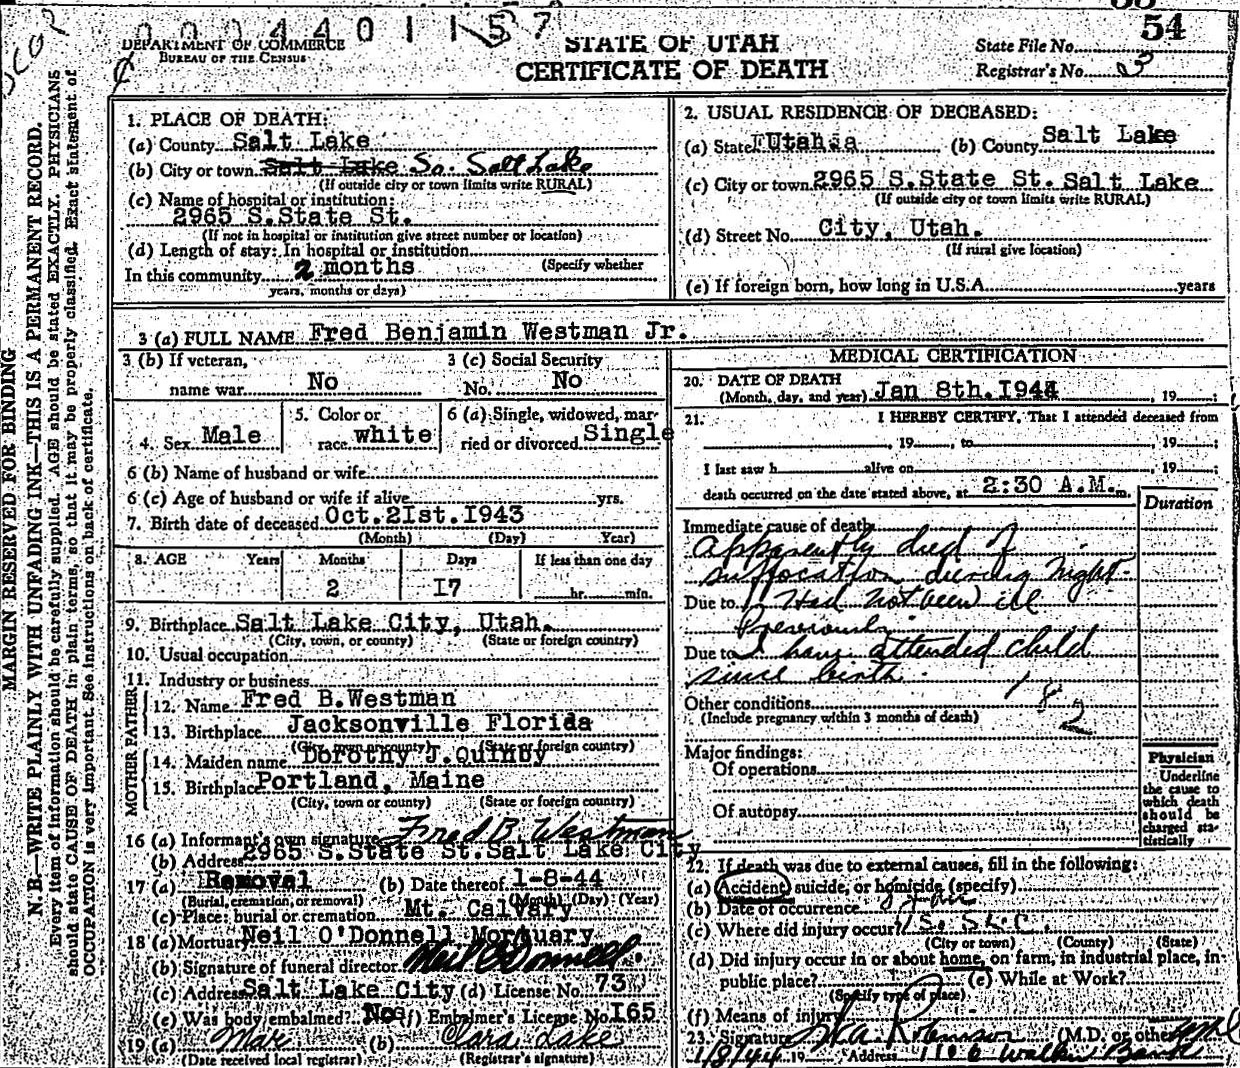 0004401157
54
DEPARTMENT OF COMMERCE
BUREAU OF THE CENSUS
STATE OF UTAH
CERTIFICATE OF DEATH
State File No.
Registrar's No. 3
MARGIN RESERVED FOR BINDING
N. B.—WRITE PLAINLY WITH UNFADING INK—THIS IS A PERMANENT RECORD.
Every item of information should be carefully supplied. AGE should be stated EXACTLY. PHYSICIANS
should state CAUSE OF DEATH in plain terms, so that it may be properly classified. Exact statement of
OCCUPATION is very important. See instructions on back of certificate.
1. PLACE OF DEATH:
(a) County Salt Lake
(b) City or town Salt Lake So. Salt Lake
(If outside city or town limits write RURAL)
(c) Name of hospital or institution:
2965 S.State St.
(If not in hospital or institution give street number or location)
(d) Length of stay: In hospital or institution
(Specify whether
In this community 2 months
years, months or days)
2. USUAL RESIDENCE OF DECEASED:
(a) State Utah (b) County Salt Lake
(c) City or town 2965 S.State St. Salt Lake
(If outside city or town limits write RURAL)
(d) Street No. City, Utah.
(If rural give location)
(e) If foreign born, how long in U.S.A. years
3 (a) FULL NAME Fred Benjamin Westman Jr.
3 (b) If veteran,
name war No
3 (c) Social Security
No. No
4. Sex Male
5. Color or
race white
6 (a) Single, widowed, mar-
ried or divorced Single
6 (b) Name of husband or wife
6 (c) Age of husband or wife if alive yrs.
7. Birth date of deceased Oct.2Ist.I943
(Month) (Day) Year)
8. AGE Years Months Days If less than one day
2 I7 hr. min.
9. Birthplace Salt Lake City, Utah.
(City, town, or county) (State or foreign country)
10. Usual occupation
11. Industry or business
FATHER
12. Name Fred B.Westman
13. Birthplace Jacksonville Florida
(City, town or county) (State or foreign country)
MOTHER
14. Maiden name Dorothy J.Quinby
15. Birthplace Portland, Maine
(City, town or county) (State or foreign country)
16 (a) Informant's own signature Fred B. Westman
(b) Address 2965 S.State St.Salt Lake City
17 (a) Removal (b) Date thereof 1-8-44
(Burial, cremation, or removal) (Month) (Day) (Year)
(c) Place: burial or cremation Mt. Calvary
18 (a) Mortuary Neil O'Donnell Mortuary
(b) Signature of funeral director Neil O'Donnell
(c) Address Salt Lake City (d) License No. 73
(e) Was body embalmed? No (f) Embalmer's License No. I65
19 (a) Mar (b) Clara Lake
(Date received local registrar) (Registrar's signature)
MEDICAL CERTIFICATION
20. DATE OF DEATH
(Month, day, and year) Jan 8th.I944, 19
21. I HEREBY CERTIFY, That I attended deceased from
, 19 , to , 19 ;
I last saw h alive on , 19 ;
death occurred on the date stated above, at 2:30 A.M. m.
Duration
Immediate cause of death
Apparently died of
suffocation during night
Due to Had not been ill
Previously
Due to I have attended child
since birth
Other conditions
(Include pregnancy within 3 months of death)
182
Major findings:
Of operations
Of autopsy
Physician
Underline
the cause to
which death
should be
charged sta-
tistically
22. If death was due to external causes, fill in the following:
(a) Accident, suicide, or homicide (specify)
(b) Date of occurrence 8 Jan
(c) Where did injury occur? So. S.L.C.
(City or town) (County) (State)
(d) Did injury occur in or about home, on farm, in industrial place, in
public place? (e) While at Work?
(Specify type of place)
(f) Means of injury
23. Signature Robinson (M.D. or other)
1/8/44 19 Address 1106 Walker Bank